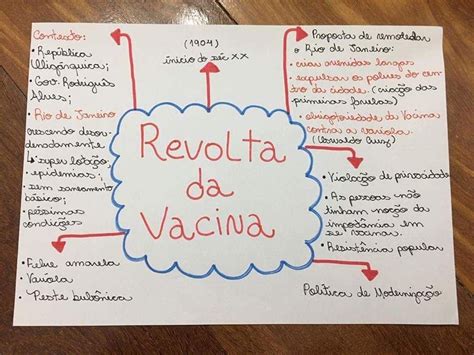 Contexto:
• República
Oligárquica;
• Gov. Rodrigues
Alves;
• Rio de Janeiro
crescendo desor-
denadamente
↳ super lotação;
• epidemias;
• sem saneamento
básico;
• péssimas
condições
• Febre amarela
• Varíola
• Peste bubônica
(1904)
início do séc XX
Revolta
da
Vacina
Proposta de remodelar
o Rio de Janeiro:
• criar avenidas largas
• expulsar os pobres do cen-
tro da cidade. (criação das
primeiras favelas)
• obrigatoriedade da vacina
contra a varíola.
(Oswaldo Cruz)
• Violação de privacidade
• As pessoas não
tinham noção da
importância em
se vacinar.
• Resistência popular
Política de Modernização